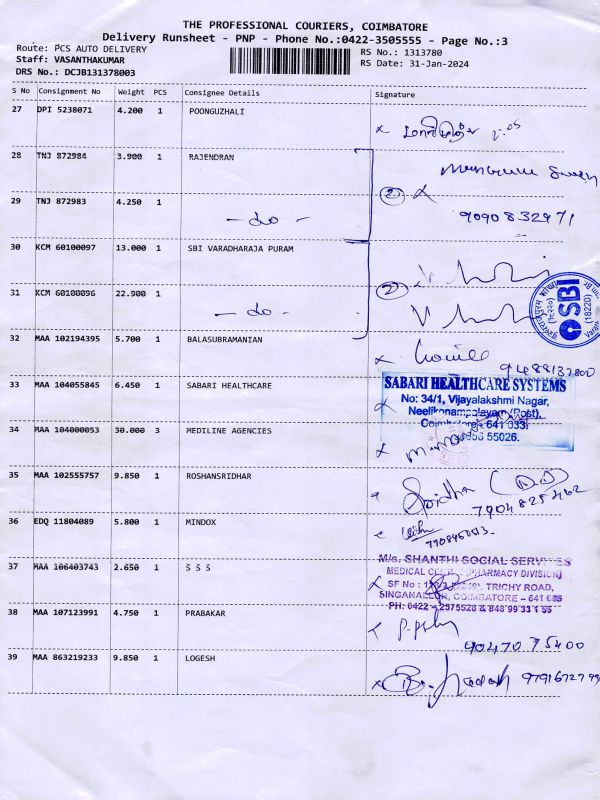 THE PROFESSIONAL COURIERS, COIMBATORE
Delivery Runsheet - PNP - Phone No.:0422-3505555 - Page No.:3
Route: PCS AUTO DELIVERY
Staff: VASANTHAKUMAR
DRS No.: DCJB131378003
RS No.: 1313780
RS Date: 31-Jan-2024
S No Consignment No Weight PCS Consignee Details Signature
27 DPI 5238071 4.200 1 POONGUZHALI
28 TNJ 872984 3.900 1 RAJENDRAN
29 TNJ 872983 4.250 1
- do -
2
9090832971
30 KCM 60100097 13.000 1 SBI VARADHARAJA PURAM
31 KCM 60100096 22.900 1
- do -
2
SBI
(18220)
32 MAA 102194395 5.700 1 BALASUBRAMANIAN
33 MAA 104055845 6.450 1 SABARI HEALTHCARE
SABARI HEALTHCARE SYSTEMS
No: 34/1, Vijayalakshmi Nagar,
Neelikonampalayam (Post),
Coimbatore - 641 033.
55026.
34 MAA 104000053 30.000 3 MEDILINE AGENCIES
35 MAA 102555757 9.850 1 ROSHANSRIDHAR
Sridha
7904825462
36 EDQ 11804089 5.800 1 MINDOX
37 MAA 106403743 2.650 1 S S S
M/s. SHANTHI SOCIAL SERVICES
MEDICAL (PHARMACY DIVISION)
SF No : TRICHY ROAD,
SINGANALLUR, COIMBATORE - 641 005
PH: 0422 - 2575528 & 848 99 33 1 55
38 MAA 107123991 4.750 1 PRABAKAR
9047075400
39 MAA 863219233 9.850 1 LOGESH